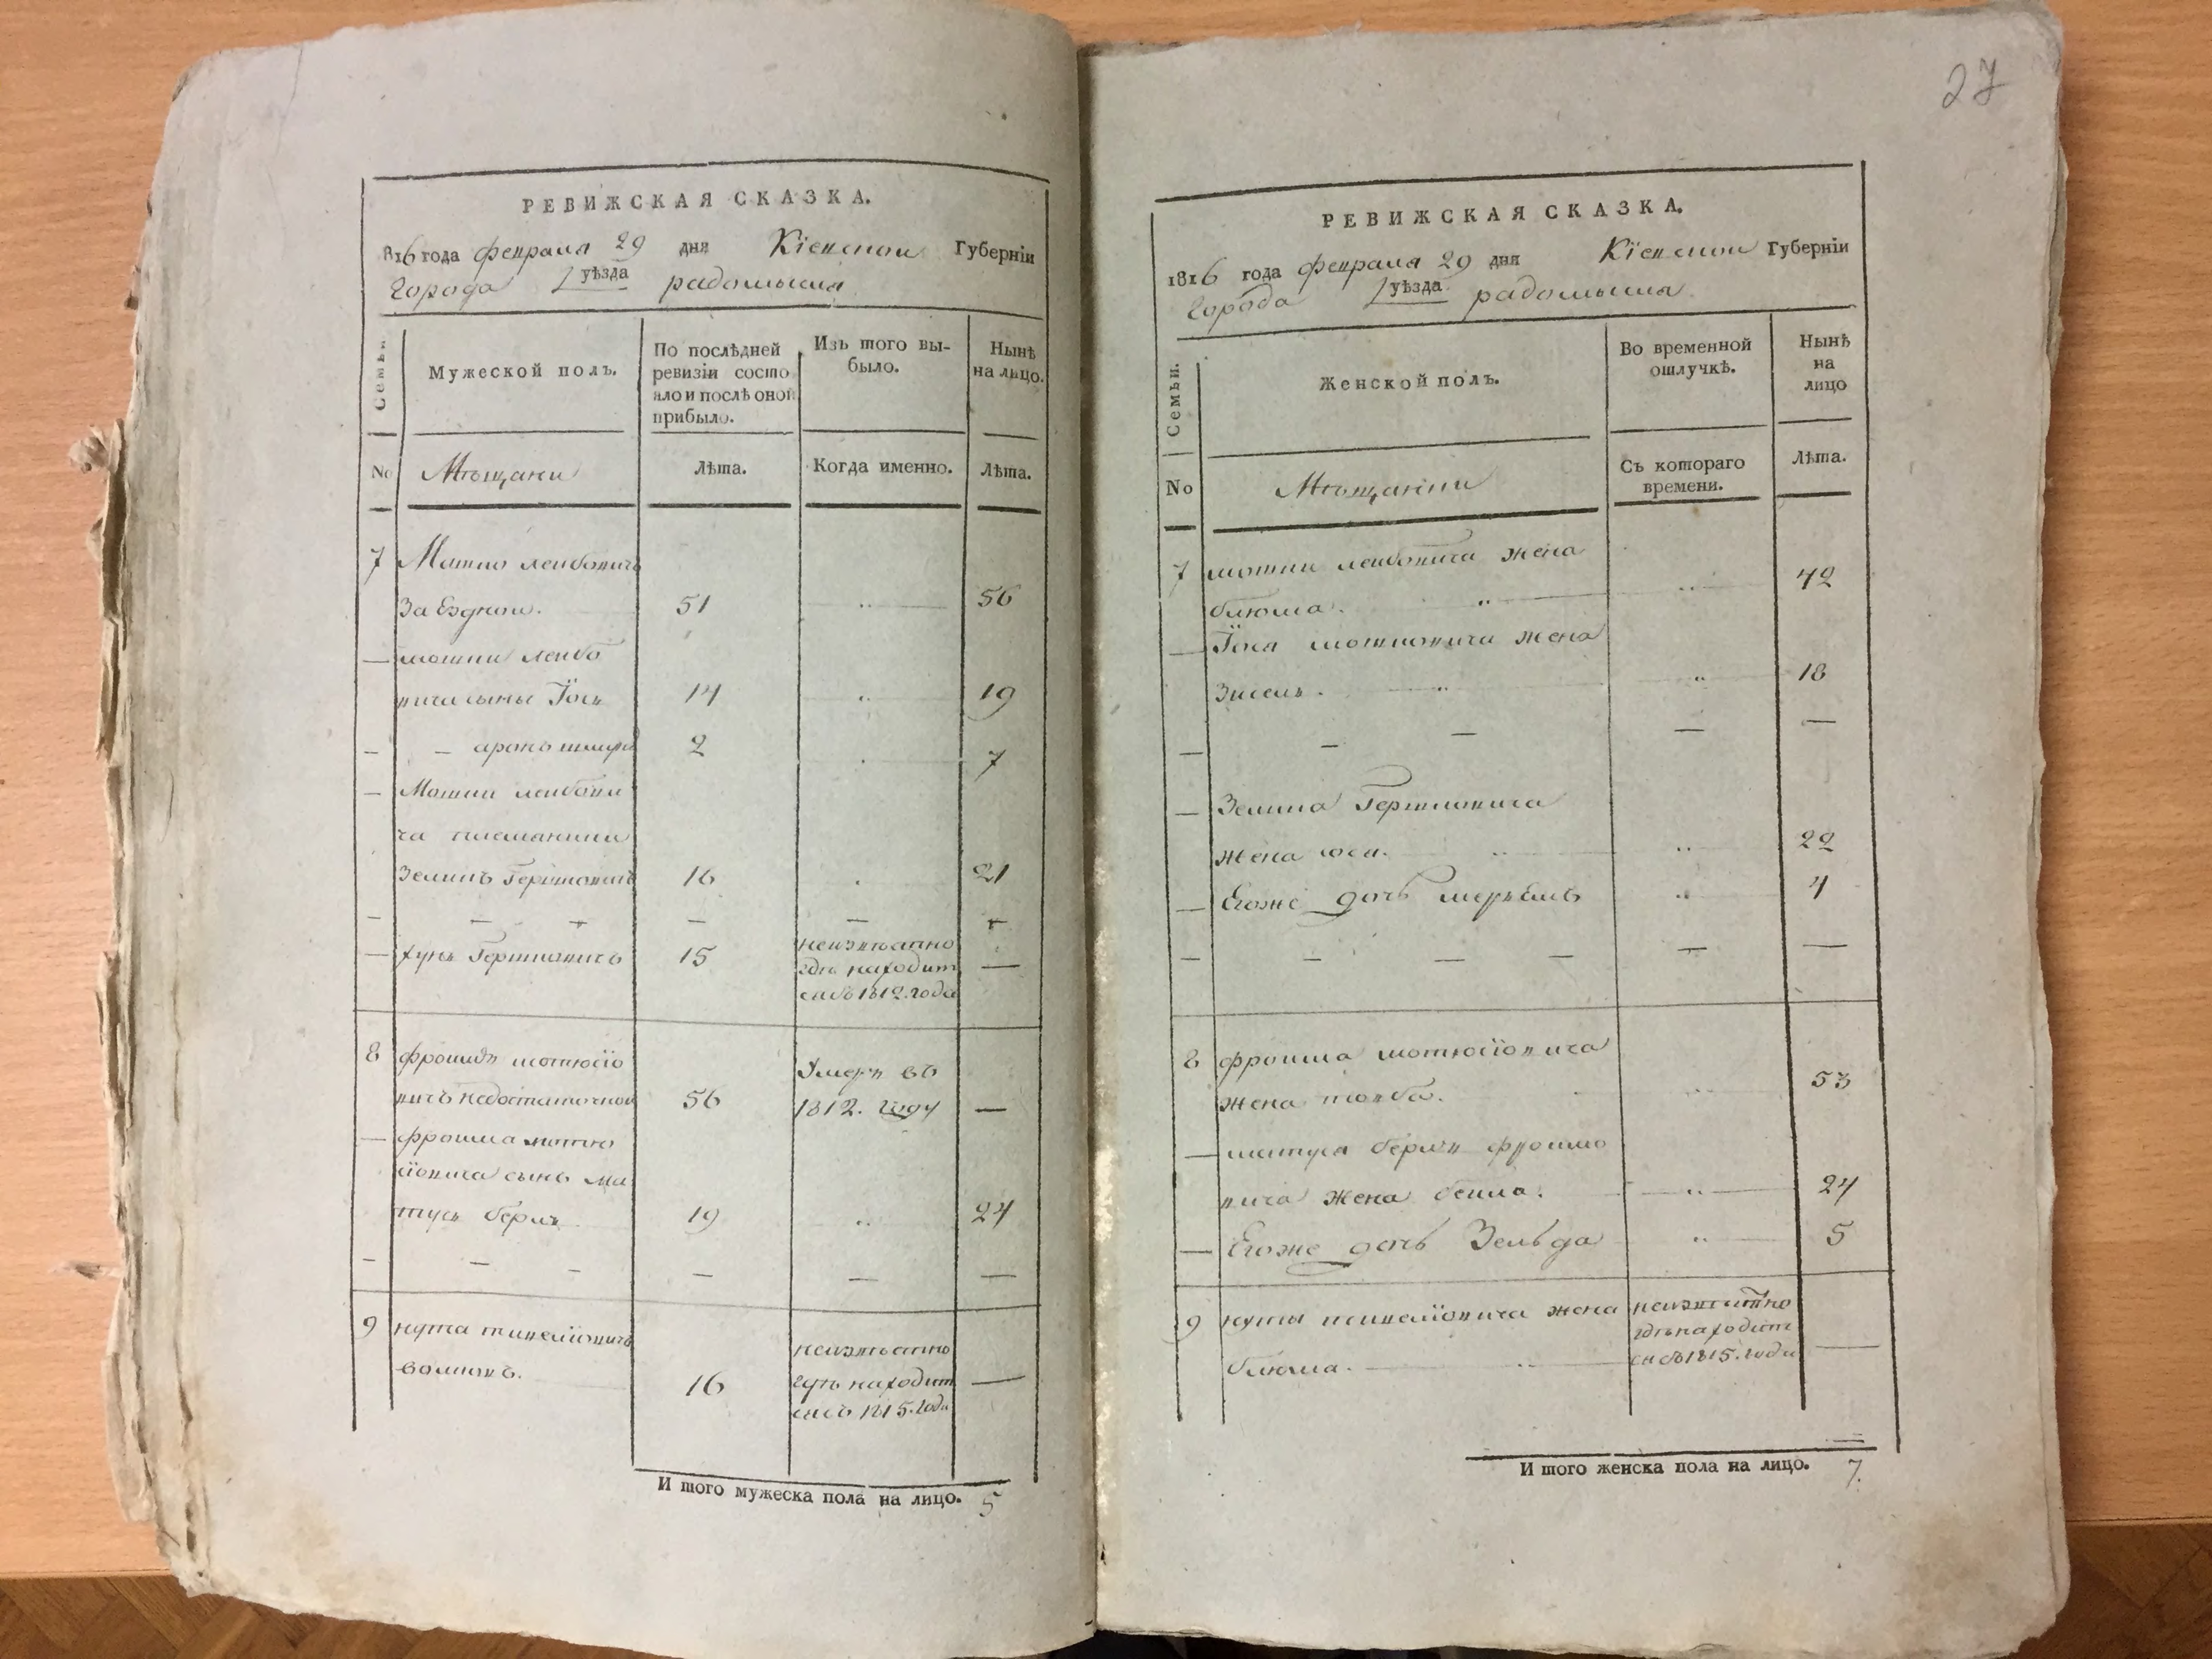 РЕВИЖСКАЯ СКАЗКА.
816 года февраля 29 дня Кіевской Губерніи
Города уѣзда радомысля
Семьи.
Мужеской полъ.
По послѣдней ревизіи состояло и послѣ оной прибыло.
Изъ того выбыло.
Нынѣ на лицо.
No Мѣщани Лѣта. Когда именно. Лѣта.
7 Мошко лейбовичъ
Заездной. 51 56
мошки лейбо
вича сыны Їось 14 19
аронъ шмуль 2 7
Мошки лейбови
ча племянники
Зелигъ Гершковичъ 16 21
Гершковичъ 15 неизвѣстно
гдѣ находит
ся съ 1812. года
8
вичъ недостаточной 56 Умер въ
1812. году
сынъ Ма
тусь берль 19 24
9 нута
волковъ. 16 неизвѣстно
гдѣ находит
ся съ 1815. года
И того мужеска пола на лицо. 5
27
РЕВИЖСКАЯ СКАЗКА.
1816 года февраля 29 дня Кїевской Губерніи
Города уѣзда радомысля
Семьи.
Женской полъ.
Во временной отлучкѣ.
Нынѣ на лицо
No Мѣщанки Съ котораго времени. Лѣта.
7 мошки лейбовича жена
блюма. 42
Їося мошковича жена
Зисель. 18
Зелига Гершковича
жена 22
Егоже дочь 4
8
жена 53
матуса берля
вича жена бейла. 24
Егоже дочь Зельда 5
9 нуты жена неизвѣстно
гдѣ находит
блюма. ся съ 1815. года
И того женска пола на лицо. 7.